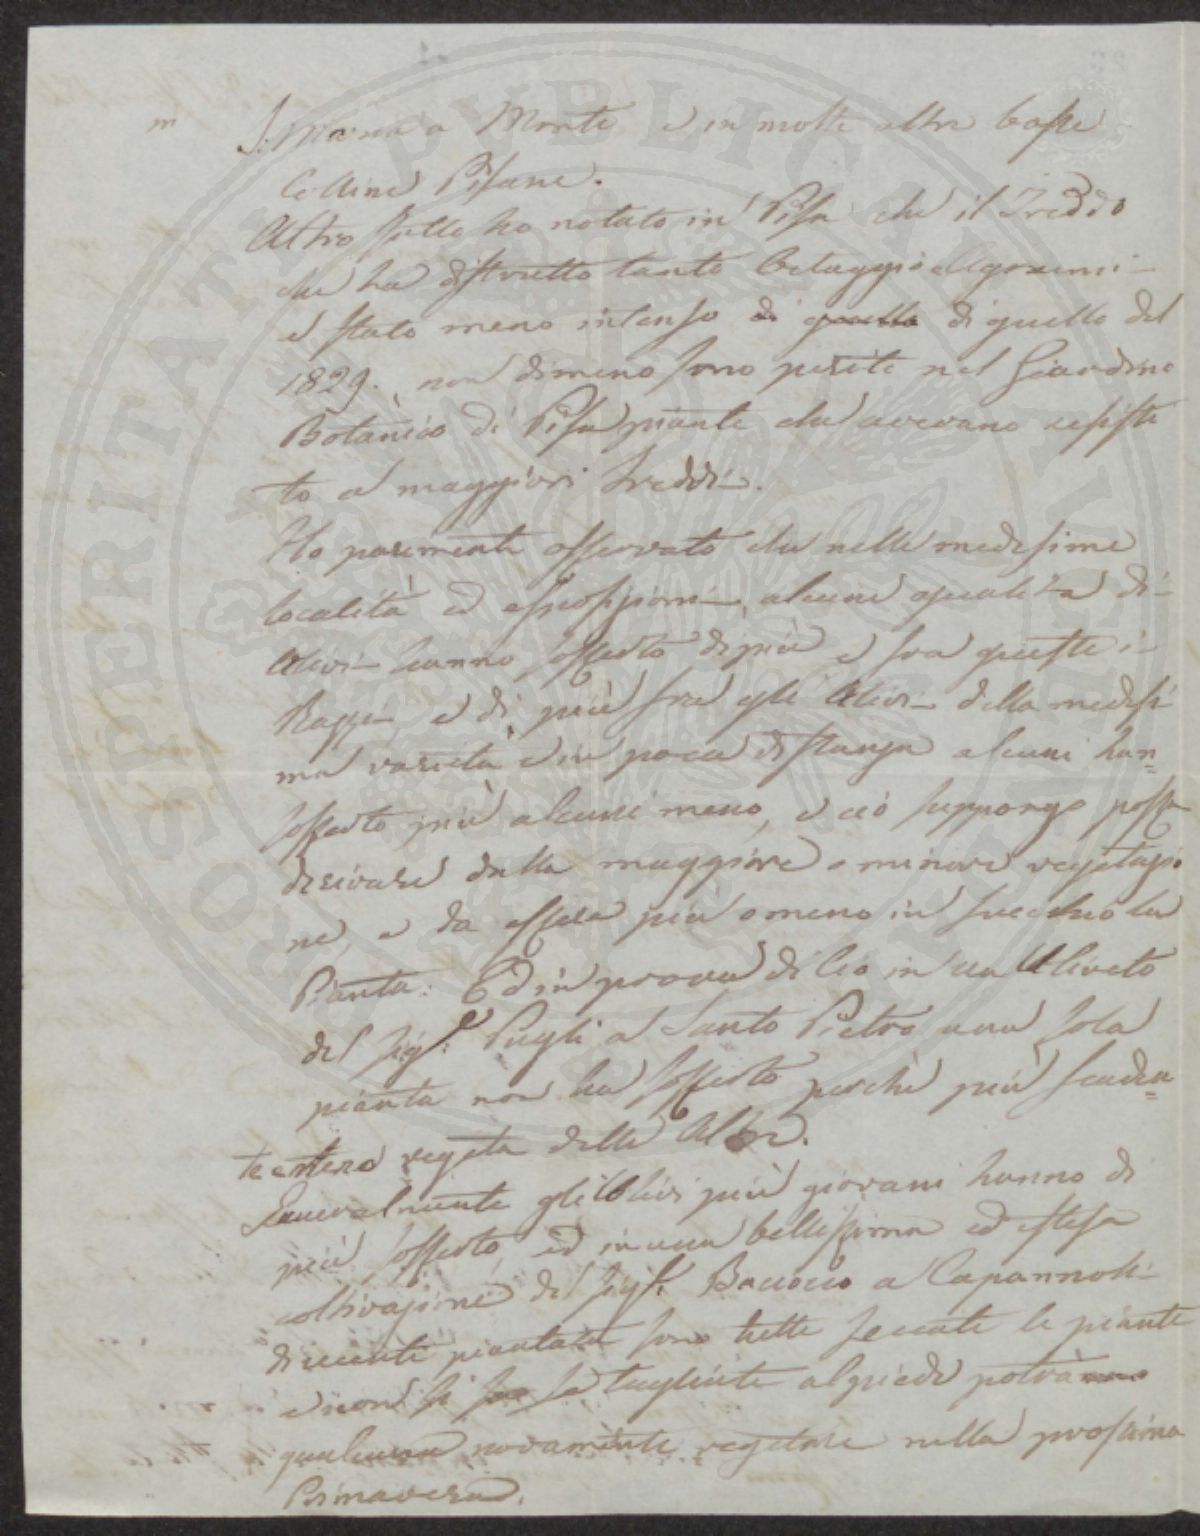 S. Maria a Monte e in molte altre basse
Colline Pisane.
Altro fatto ho notato in Pisa che il Freddo
che ha distrutto tanto
è stato meno intenso di quello di quello del
1829. non dimeno sono perite nel Giardino
Botanico di Pisa piante che avevano resisti
to a maggiori freddi.
Ho parimente osservato che nelle medesime
località ed esposizioni, alcune qualità di
Ulivi hanno sofferto di più e fra queste i
Razzi, e di più fra gli Ulivi della medesi
ma varietà e in poca distanza alcuni han=
sofferto più alcuni meno, e ciò suppongo possa
derivare dalla maggiore o minore vegetazio
ne, e da essere più o meno in succhio la
Pianta. Ed in prova di ciò in un Uliveto
del Sigr. Pugli a Santo Pietro una sola
pianta non ha sofferto perchè più scaden=
te e meno vegeta delle Altre.
Generalmente gli Ulivi più giovani hanno di
più sofferto, ed in una bellissima ed estesa
coltivazione del Sigr. Baciocco a Capannoli
di recente piantata sono tutte seccate le piante
e non si se tagliate al piede potranno
qualcuna novamente vegetare nella prossima
Primavera.